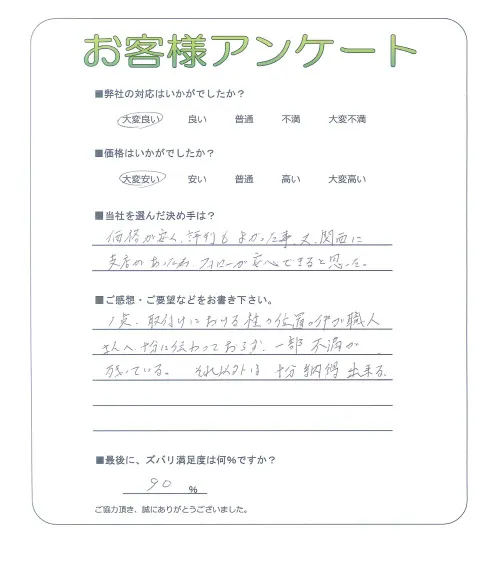 お客様アンケート
■弊社の対応はいかがでしたか？
大変良い 良い 普通 不満 大変不満
■価格はいかがでしたか？
大変安い 安い 普通 高い 大変高い
■当社を選んだ決め手は？
価格が安く、評判もよかった事、又、関西に
支店があったため、フォローが安心できると思った。
■ご感想・ご要望などをお書き下さい。
1点、取付けにおける柱の位置の件が職人
さんへ十分に伝わっておらず、一部不満が
残っている。 それ以外は十分納得出来る。
■最後に、ズバリ満足度は何%ですか？
90 %
ご協力頂き、誠にありがとうございました。